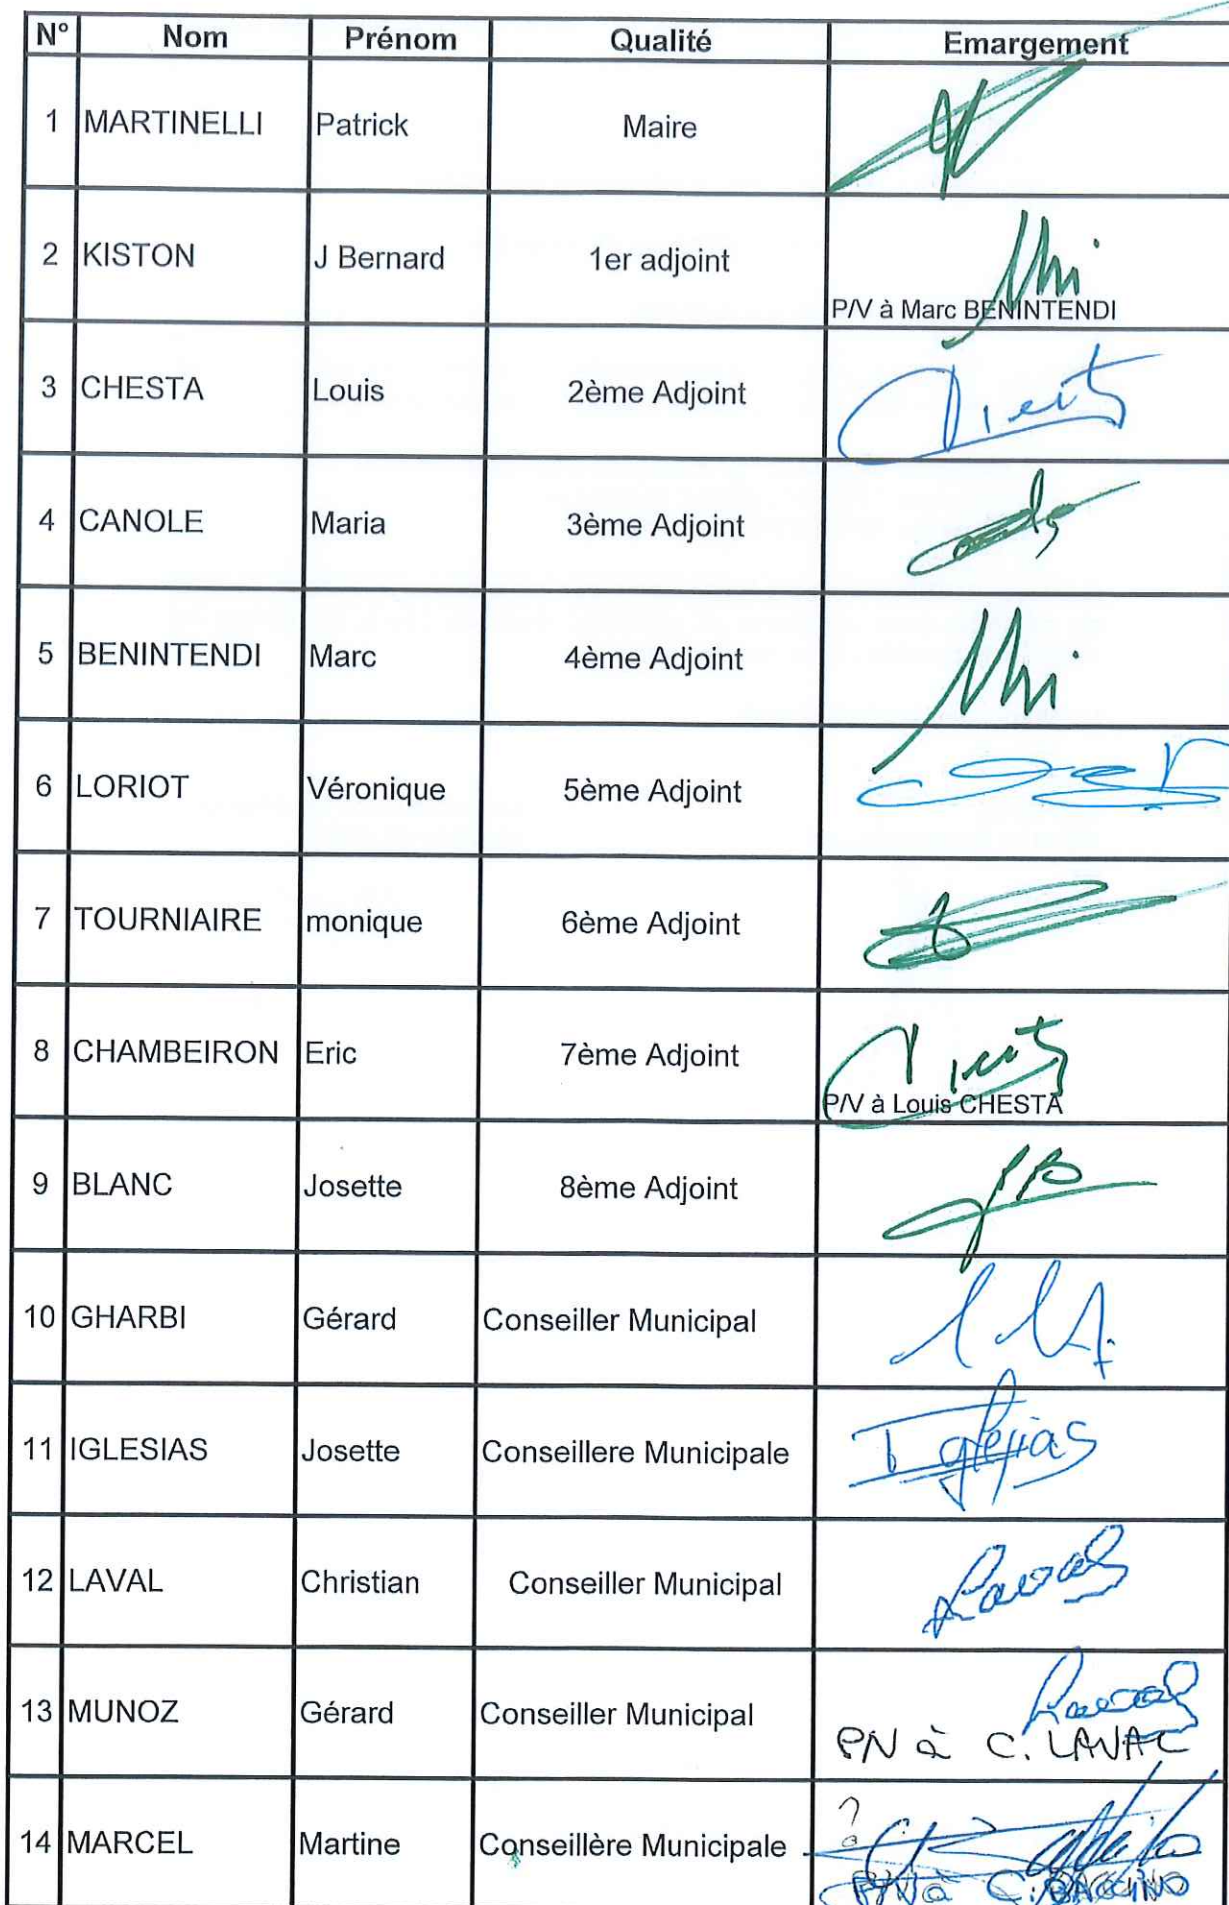 N° Nom Prénom Qualité Emargement
1 MARTINELLI Patrick Maire
2 KISTON J Bernard 1er adjoint
P/V à Marc BENINTENDI
3 CHESTA Louis 2ème Adjoint
4 CANOLE Maria 3ème Adjoint
5 BENINTENDI Marc 4ème Adjoint
6 LORIOT Véronique 5ème Adjoint
7 TOURNIAIRE monique 6ème Adjoint
8 CHAMBEIRON Eric 7ème Adjoint
P/V à Louis CHESTA
9 BLANC Josette 8ème Adjoint
10 GHARBI Gérard Conseiller Municipal
11 IGLESIAS Josette Conseillere Municipale Iglesias
12 LAVAL Christian Conseiller Municipal Laval
13 MUNOZ Gérard Conseiller Municipal Laval
P/V à C. LAVAL
14 MARCEL Martine Conseillère Municipale
P/V à C. BACCINO